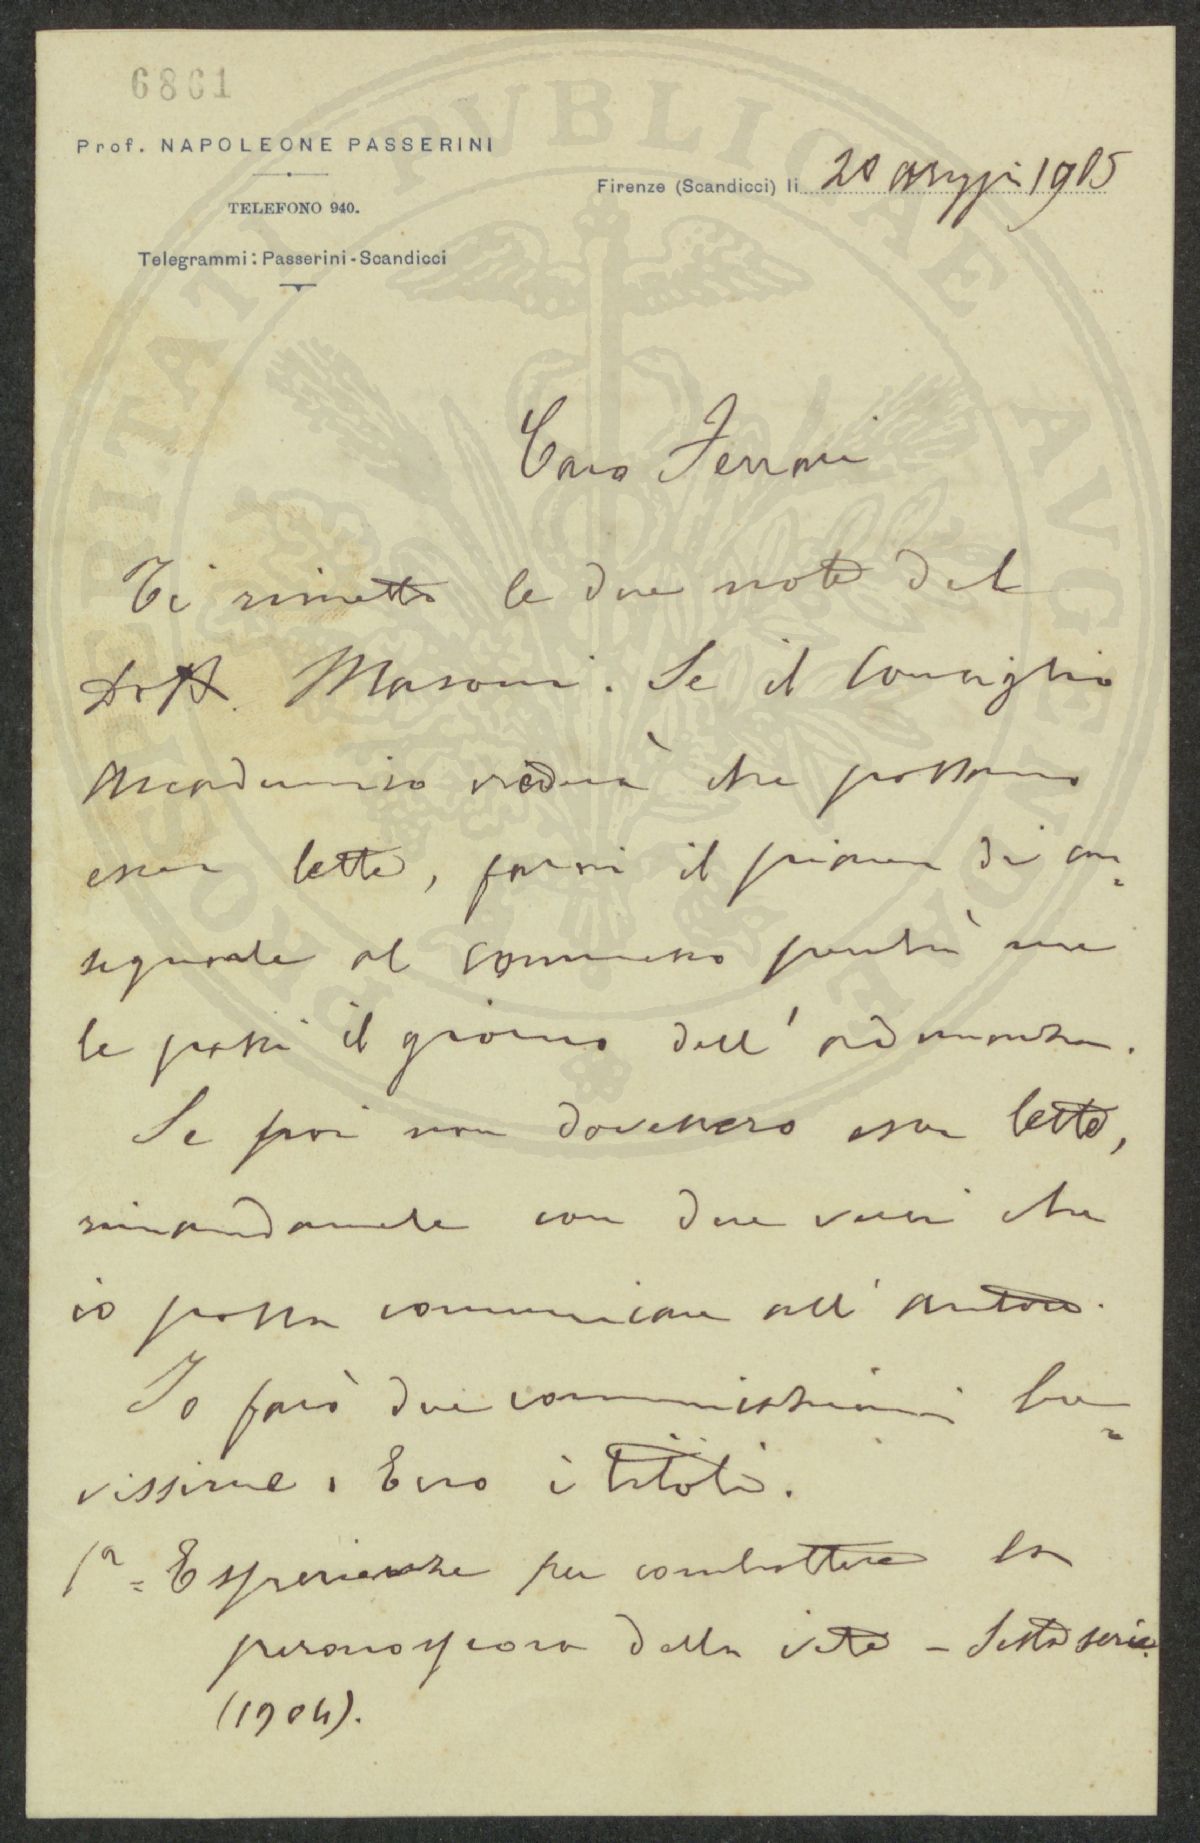 6861
Prof. NAPOLEONE PASSERINI
TELEFONO 940.
Telegrammi: Passerini-Scandicci
Firenze (Scandicci) li 20 Maggio 1905
PROSPERITATI PVBLICAE AVGENDAE
Caro Ferrari
Ti rimetto le due note del
Dott. Masoni. Se il Consiglio
Accademico crederà che possano
esser lette, fammi il piacere di con=
segnarle al commesso perchè me
le passi il giorno dell' adunanza.
Se poi non dovessero esser lette,
rimandamele con due versi che
io possa comunicare all' autore.
Io farò due comunicazioni bre=
vissime. Ecco i titoli.
1a = Esperienze per combattere la
peronospora della vite - Sesta serie.
(1904).